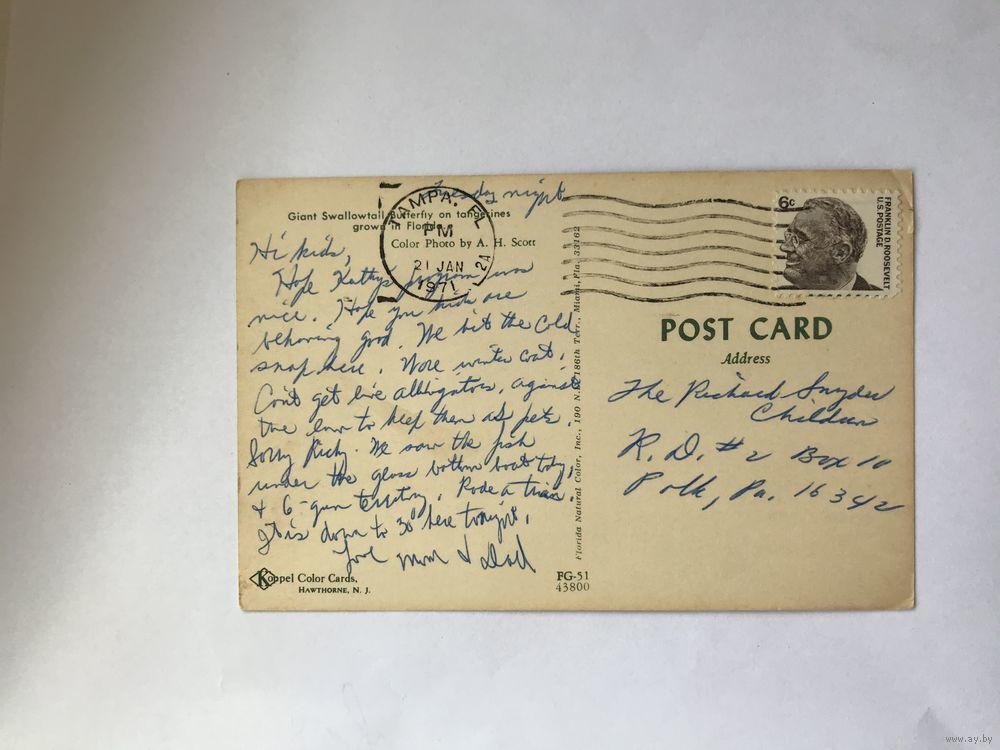 Tuesday night
Giant Swallowtail Butterfly on tangerines
grown in Florida
Color Photo by A. H. Scott
TAMPA. FL
PM
21 JAN
1971
2A
Hi kids,
Hope Kathy's program was
nice. Hope you kids are
behaving good. We hit the cold
snap here. Wore winter coat.
Can't get live alligators, against
the law to keep them as pets.
Sorry Ricky. We saw the fish
under the glass bottom boat today,
& 6-gun territory. Rode a train.
It is down to 30° here tonight.
Love Mom & Dad
Koppel Color Cards,
HAWTHORNE, N. J.
Florida Natural Color, Inc., 190 N.E. 186th Terr., Miami, Fla. 33162
FG-51
43800
6c
FRANKLIN D. ROOSEVELT
U.S. POSTAGE
POST CARD
Address
The Richard Snyder
Children
R. D. # 2 Box 10
Polk, Pa. 16342
www.ay.by